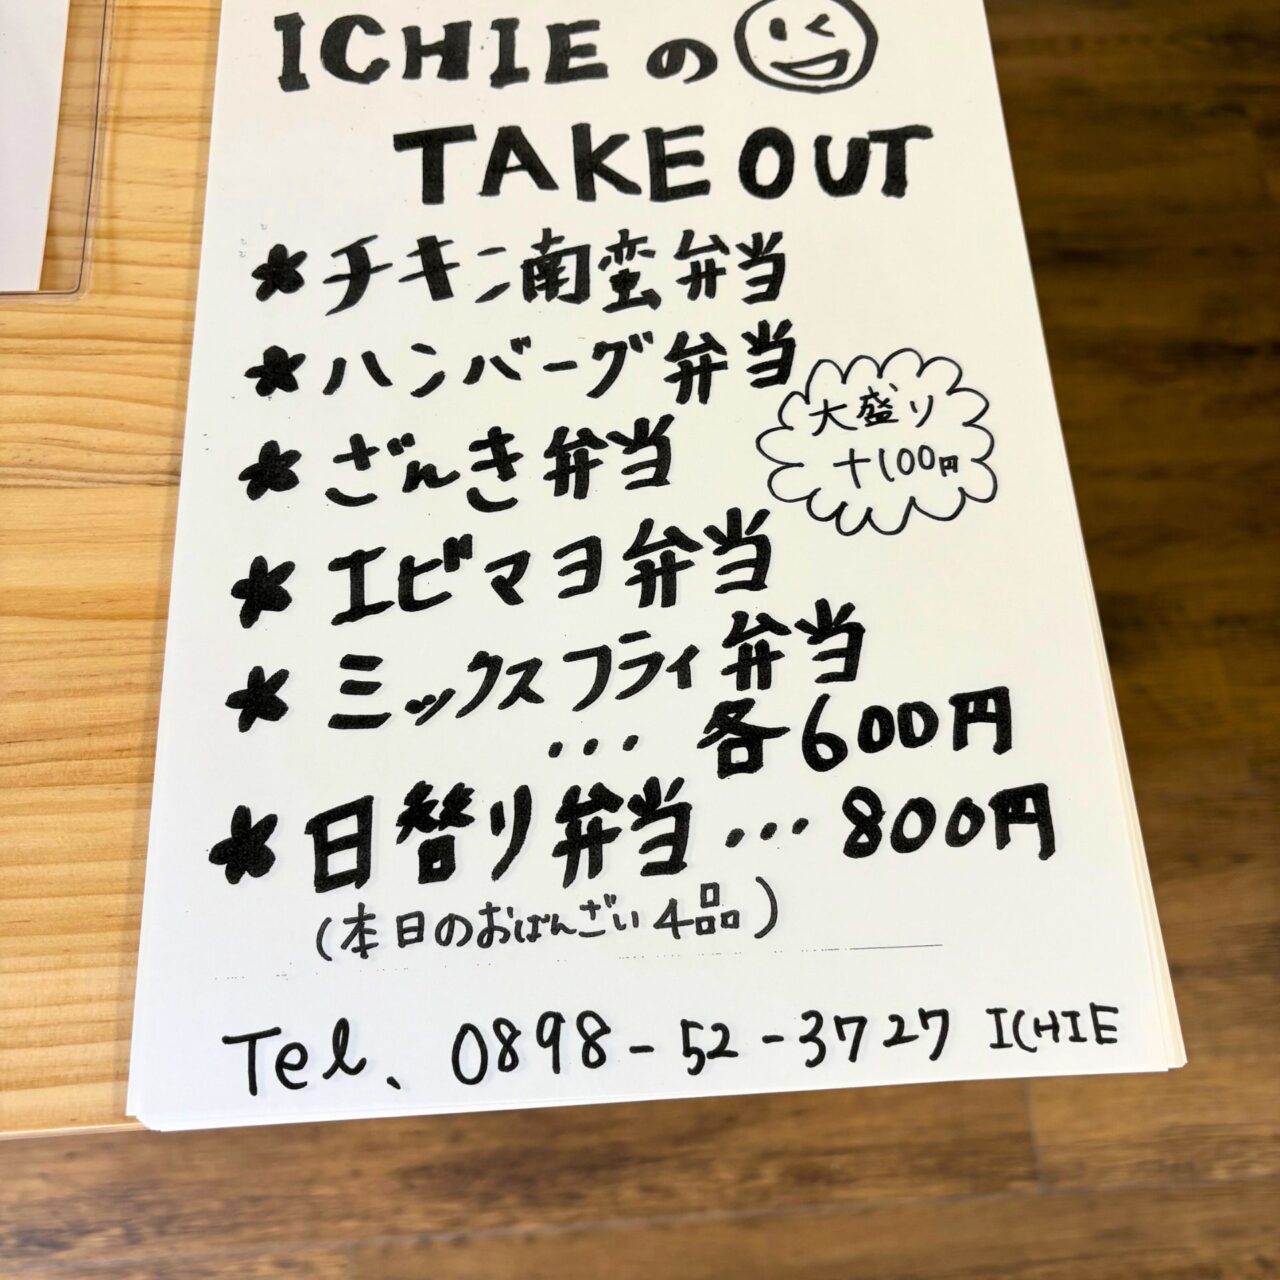 ICHIEの
TAKEOUT
★チキン南蛮弁当
★ハンバーグ弁当
大盛り
+100円
★ざんき弁当
★エビマヨ弁当
★ミックスフライ弁当
... 各600円
★日替り弁当...800円
(本日のおばんざい4品)
Tel、0898-52-3727 ICHIE